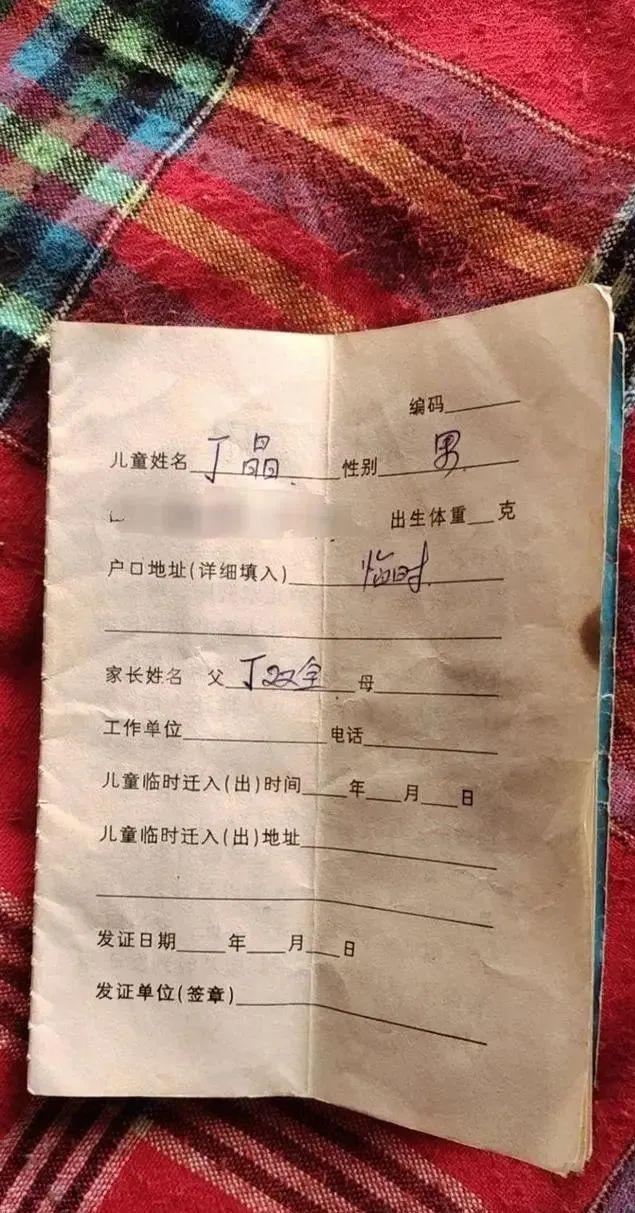 编码______
儿童姓名 丁晶 性别 男
出生体重___克
户口地址(详细填入) 临时
家长姓名 父 丁双全 母______
工作单位______电话______
儿童临时迁入(出)时间___年___月___日
儿童临时迁入(出)地址______
发证日期___年___月___日
发证单位(签章)______